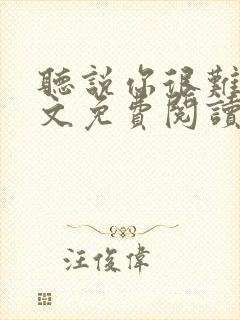 聽說你很難
文免費閱讀
汪俊偉